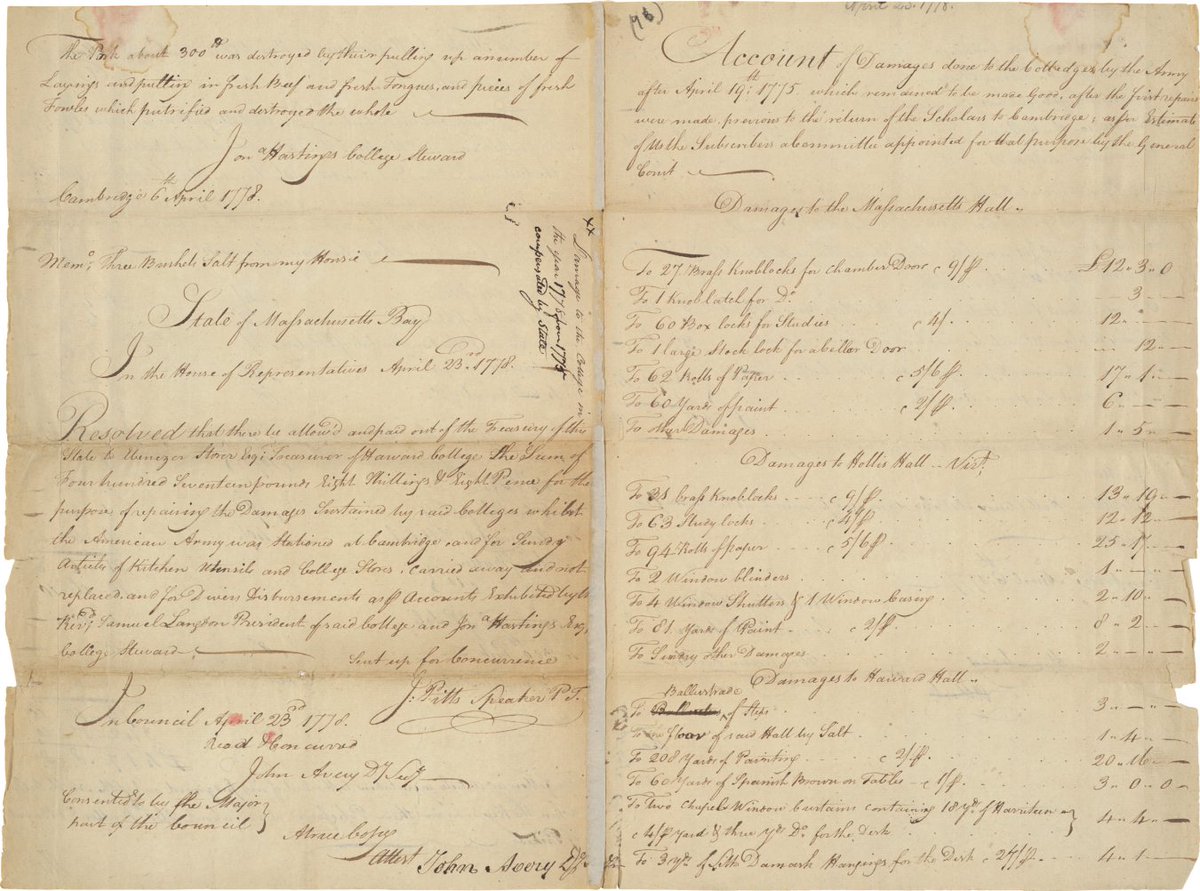 The Pork about 300 lb was destroyed by their pulling up a number of
Layings and putting in fresh Beef and fresh Tongues, and pieces of fresh
Fowles which putrified and destroyed the whole
Jona Hastings College Steward
Cambridge 6th April 1778.
Memo, Three Bushels Salt from my House
State of Massachusetts Bay
In the House of Representatives April 23rd 1778.
Resolved that there be allowed and paid out of the Treasury of this
State to Ebenezer Storer Esqr Treasurer of Harvard College the Sum of
Four hundred Seventeen pounds Eight Shillings & Eight Pence for the
purpose of repairing the Damages Sustained by said Colleges whilst
the American Army was Stationed at Cambridge and for Sundry
Articles of Kitchen Utensils and College Stores, carried away and not
replaced, and for Divers Disbursements as pr Accounts Exhibited by the
Revd Samuel Langdon President of said College and Jona Hastings Esqr
College Steward
Sent up for Concurrence
J. Pitts Speaker P. T.
In Council April 23rd 1778.
Read & Concurred
John Avery Dy Secy
Consented to by the Major
part of the Council
A true Copy
Attest John Avery Dy Secy
Damage to the College in
the year 1775 &
compensated by State
(76)
April 23. 1778.
Account of Damages done to the Colledges by the Army
after April 19th 1775 which remained to be made Good, after the first repairs
were made, previous to the return of the Scholars to Cambridge, as pr Estimate
of Us the Subscribers a Committee appointed for that purpose by the General
Court
Damages to the Massachusetts Hall
To 27 Brass Knoblocks for chamber Door @ 9/ pr £12 " 3 " 0
To 1 Knob latch for Do 3
To 60 Box locks for Studies @ 4/ 12
To 1 large Stock lock for a Cellar Door 12
To 62 Rolls of Paper @ 5/6 pr 17 " 1
To 60 Yards of paint @ 2/ pr 6
To other Damages 1 " 5
Damages to Hollis Hall Vizt
To 31 brass Knoblocks @ 9/ pr 13 " 19
To 63 Study locks @ 4/ pr 12 " 12
To 94 Rolls of paper @ 5/6 pr 25 " 17
To 2 Window blinders 1
To 4 Window Shutters & 1 Window Casing 2 " 10
To 81 Yards of Paint @ 2/ pr 8 " 2
To Sundry other Damages 2
Damages to Harvard Hall
Ballustrade
To of Steps 3
To floor of said Hall by Salt 1 " 4
To 208 Yards of Painting @ 2/ pr 20 " 16
To 60 Yards of Spanish Brown on Tables @ 1/ pr 3 " 0 " 0
To Two Chapel Window Curtains containing 18 Yds of Harrateen
@ 4/ pr Yard & three Yds Do for the Desk 4 " 4
To 3 Yds of Silk Damask Hangings for the Desk @ 27/ pr 4 " 1